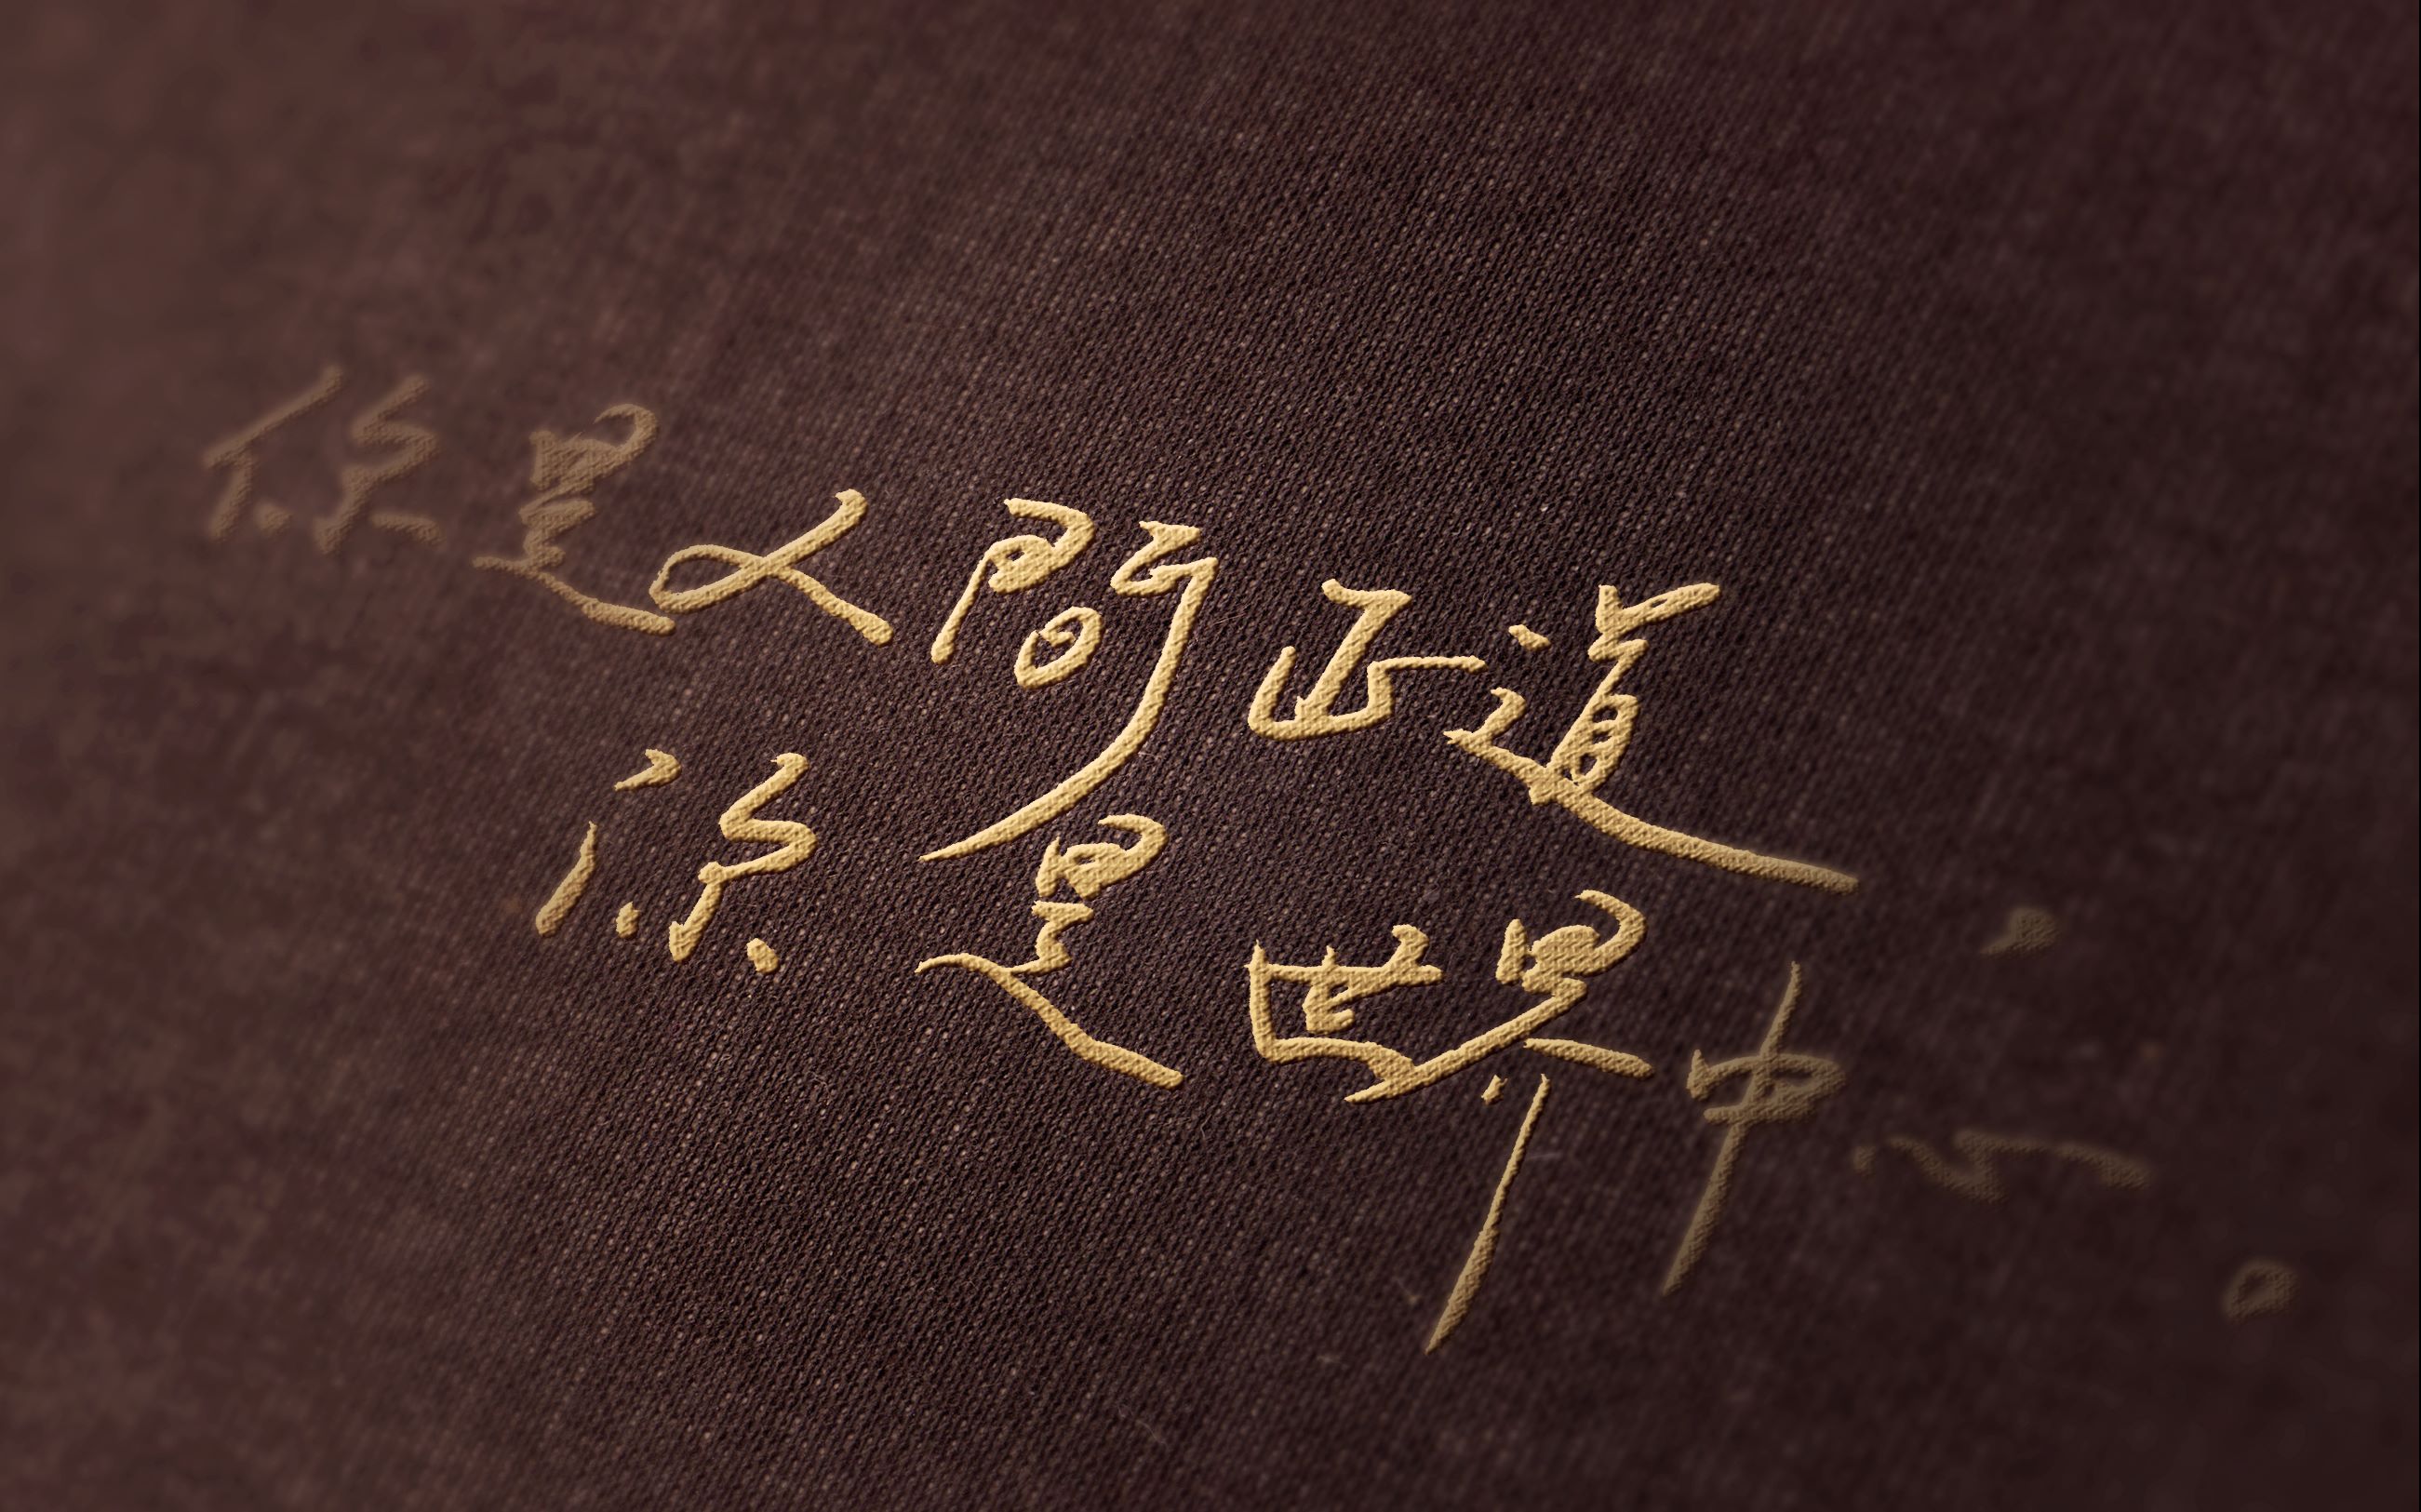 你是人間正道，
你是世界中心。